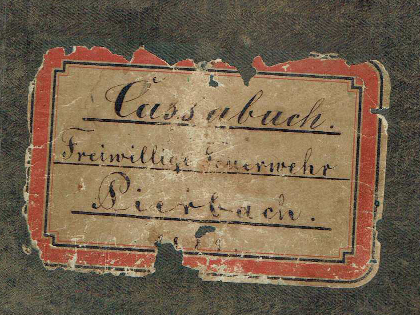 Cassabuch.
Freiwillige Feuerwehr
Pierbach.